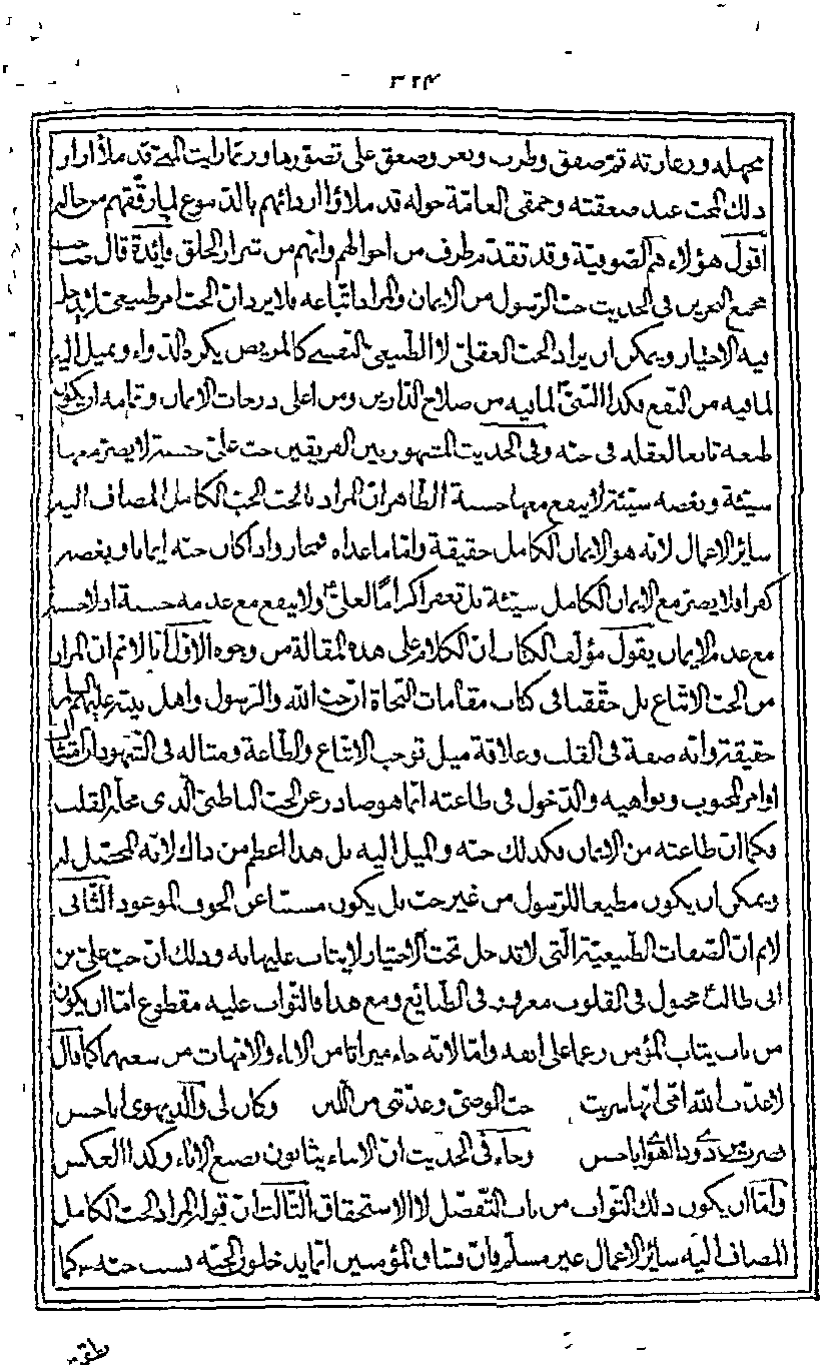 ٣٢٤
بجهله ورعارته ثم صفق وطرب ونعر وصعق على تصورها وربما رايت المنى قد ملأ ازار
ذلك المحب عند صعقته وحمقى العامة حوله قد ملاؤا اردانهم بالدموع لما رققهم من حاله
اقول هؤلاء هم الصوفية وقد تقدم طرف من احوالهم وانهم من شرار الخلق فائدة قال صاحب
مجمع البحرين فى الحديث حب الرسول من الايمان والمراد اتباعه فلا يرد ان الحب امر طبيعى لا يدخل
فيه الاختيار ويمكن ان يراد الحب العقلى لا الطبيعى النفسى كالمريض يكره الدواء ويميل اليه
لما فيه من النفع فكذا النبى لما فيه من صلاح الدارين ومن اعلى درجات الايمان وتمامه ان يكون
طبعه تابعا لعقله فى حبه وفى الحديث المشهور بين الفريقين حب على حسنة لا يضر معها
سيئة وبغضه سيئة لا ينفع معها حسنة الظاهر ان المراد بالحب الحب الكامل المضاف اليه
سائر الاعمال لانه هو الايمان الكامل حقيقة واما ما عداه فمجاز واذا كان حبه ايمانا وبغضه
كفرا فلا يضر مع الايمان الكامل سيئة بل تغفر اكراما لعلى ولا ينفع مع عدمه حسنة اذ لا حسنة
مع عدم الايمان يقول مؤلف الكتاب ان الكلام على هذه المقالة من وجوه الاول انا لا نم ان المراد
من الحب الاتباع بل حققنا فى كتاب مقامات النجاة ان حب الله والرسول واهل بيته عليهم السلام
حقيقة وانه صفة فى القلب وعلاقة ميل توجب الاتباع والطاعة ومثاله فى الشهود ان امتثال
اوامر المحبوب ونواهيه والدخول فى طاعته انما هو صادر عن الحب الباطنى الذى محله القلب
فكما ان طاعته من الايمان فكذلك حبه والميل اليه بل هذا اعظم من ذاك لانه المحصل له
ويمكن ان يكون مطيعا للرسول من غير حب بل يكون مسببا عن الخوف الموعود الثانى
لا نم ان الصفات الطبيعية التى لا تدخل تحت الاختيار لا يثاب عليها به وذلك ان حب على بن
ابى طالب مجبول فى القلوب معروف فى الطبائع ومع هذا فالثواب عليه مقطوع اما ان يكون
من باب يثاب المؤمن رغما على انفه واما لانه جاء ميراثا من الاباء والامهات من سعيهما كما قال
لا عذب الله امى انها شربت حب الوصى وغذتنى من اللبن وكان لى والد يهوى ابا حسن
فصرت من ذى وذا اهوى ابا حسن وجاء فى الحديث ان الابناء يثابون بصنع الاباء وكذا العكس
واما ان يكون ذلك الثواب من باب التفضل لا الاستحقاق الثالث ان قوله المراد الحب الكامل
المضاف اليه سائر الاعمال غير مسلم فان فساق المؤمنين انما يدخلون الجنه بسبب حبه كما